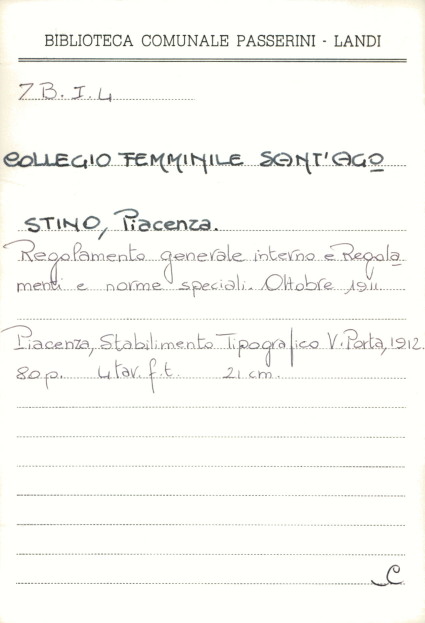 BIBLIOTECA COMUNALE PASSERINI - LANDI
7B. I. 4
COLLEGIO FEMMINILE SANT'AGO
STINO, Piacenza.
Regolamento generale interno e Regola
menti e norme speciali. Ottobre 1911.
Piacenza, Stabilimento Tipografico V. Porta, 1912.
80p. 4 tav. f.t. 21 cm.
C